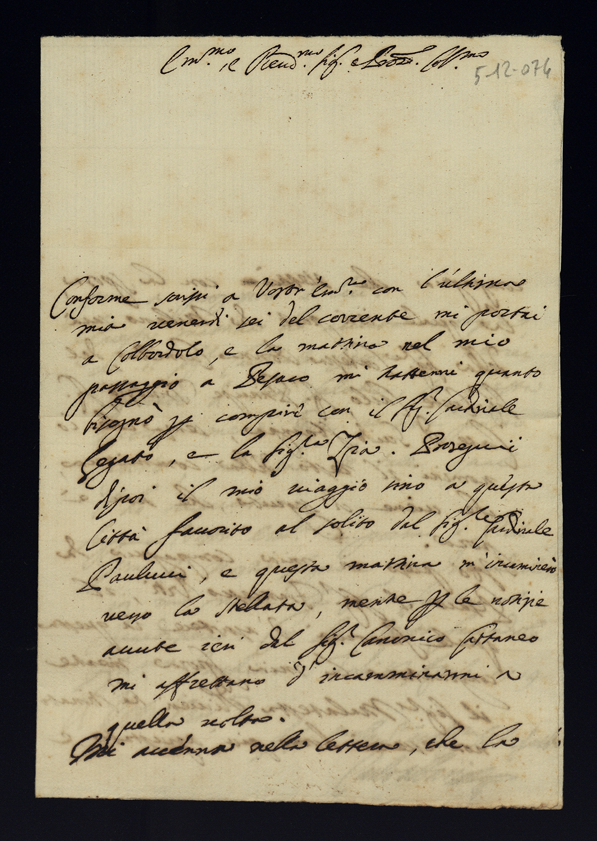 Em.mo e Rever.mo Sig.r e P'ron. Col.mo
5-12-076
Conforme scrissi a Vostr'Em.za con l'ultima
mia venerdì sei del corrente mi portai
a Colbordolo, e la mattina nel mio
passaggio a Pesaro mi trattenni quanto
bisognò per compire con il Sig.r Cardinale
Legato, e la Sig.ra Zia. Proseguii
dipoi il mio viaggio sino a questa
Città favorito al solito dal Sig.r Cardinale
Paulucci, e questa mattina m'incamino
verso la Stellata, mentre per le notizie
avute ieri dal Sig.r Canonico Cattaneo
mi affrettano d'incamminarmi a
quella volta.
Mi accenna nella lettera, che la